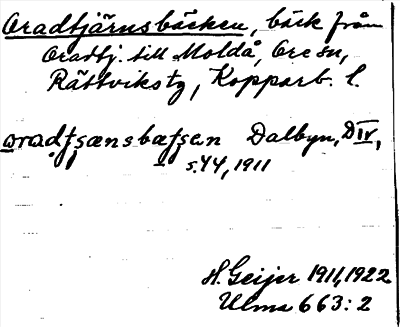 Oradtjärnsbäcken, bäck från
Oradtj. till Moldå, Ore sn,
Rättvikstg, Kopparb. l.
oradʃsænsbæʃsen Dalbyn, D IV,
s. 44, 1911
H. Geijer 1911, 1922
Ulma 663: 2